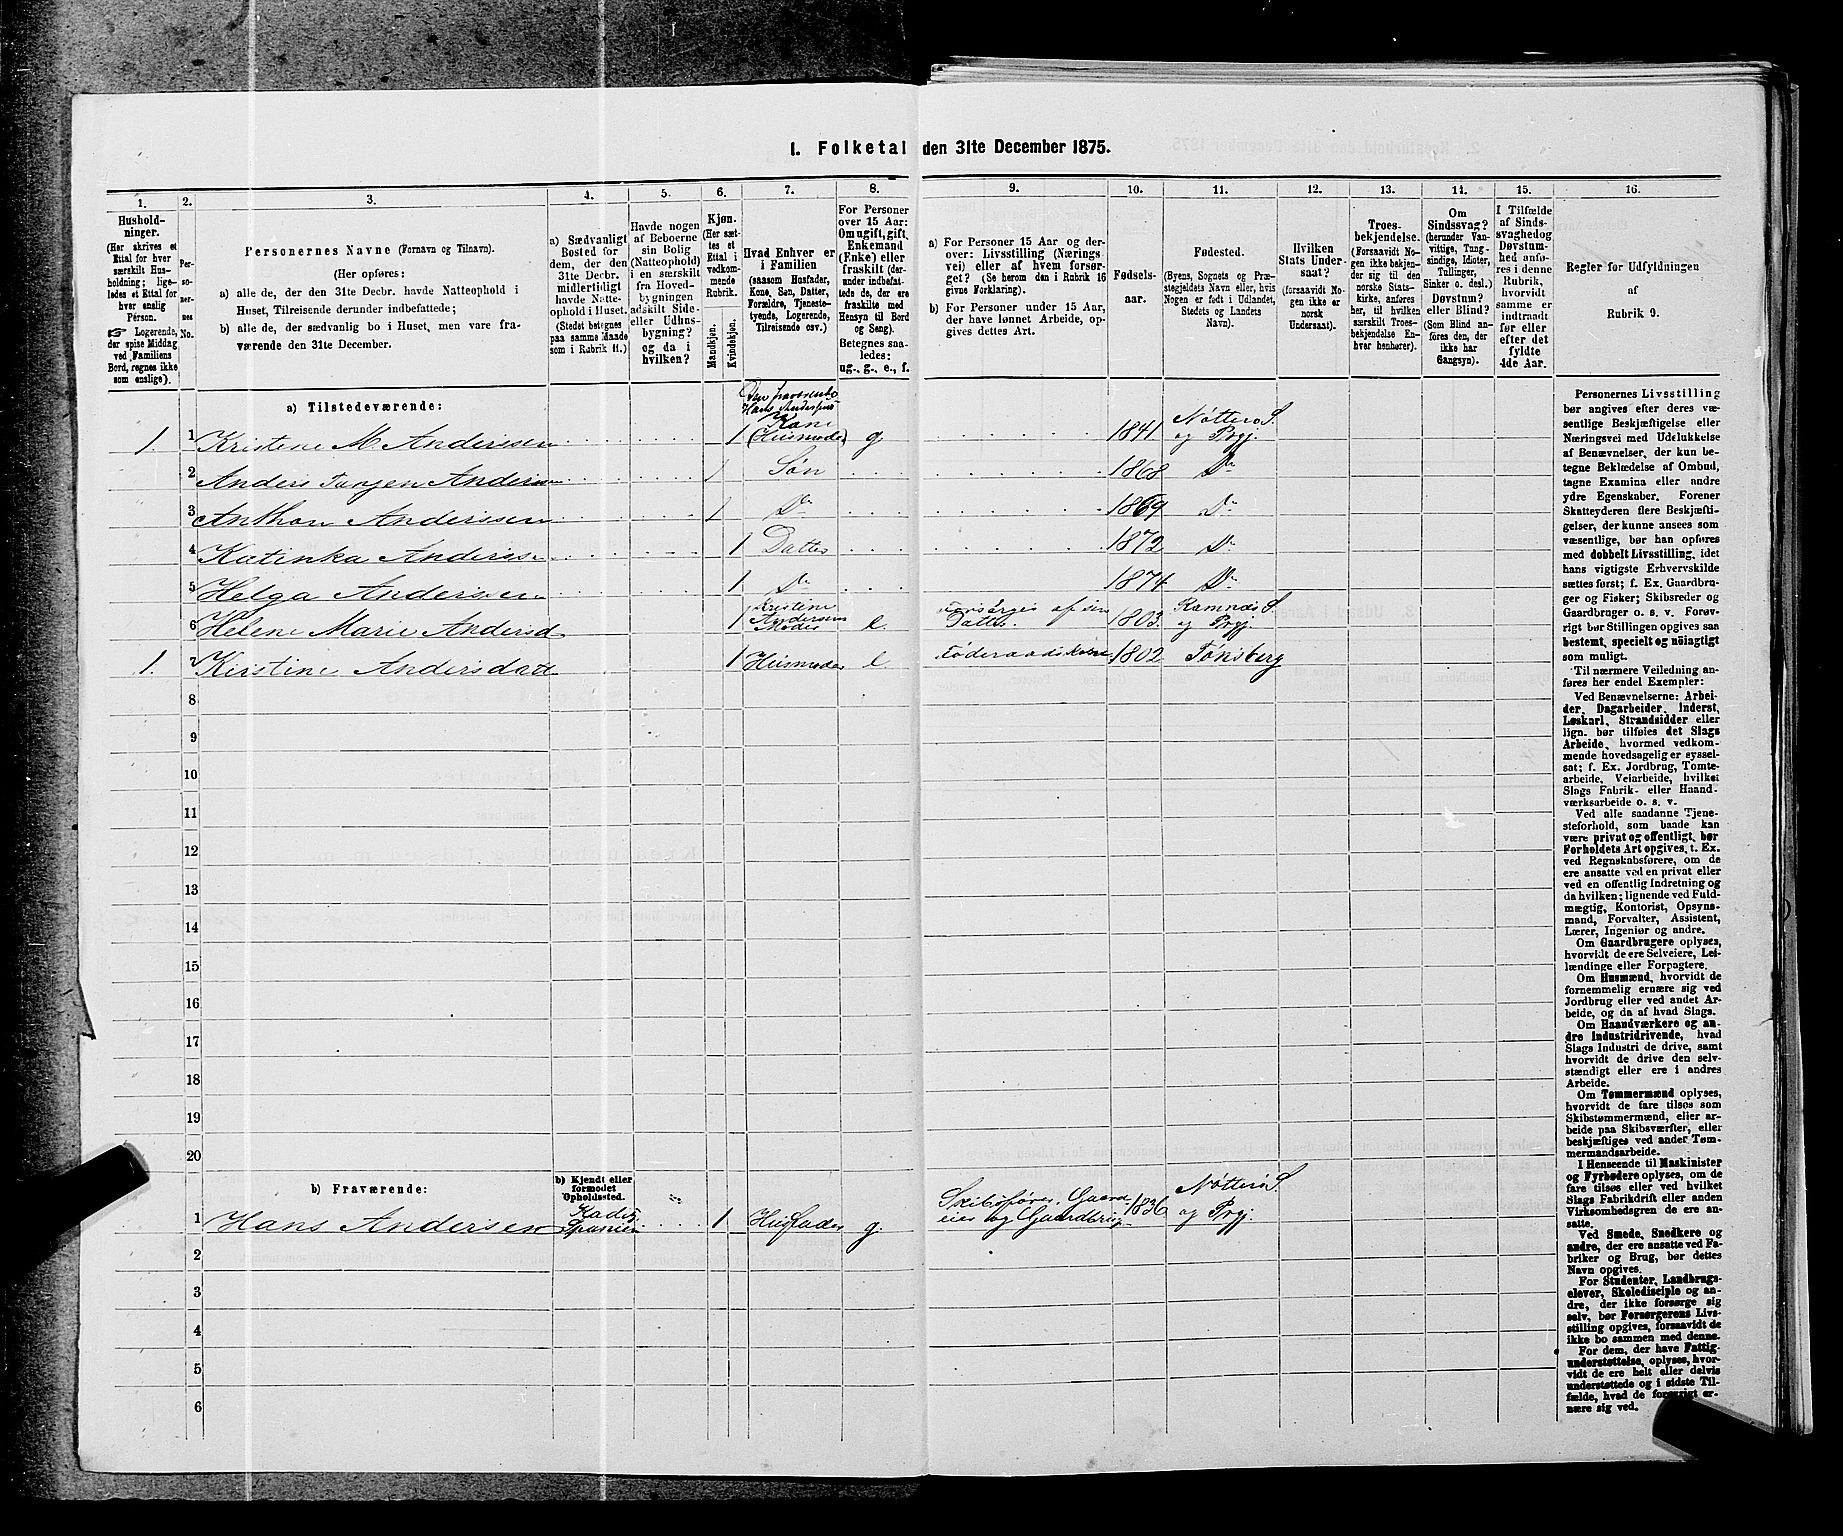 I. Folketal den 31te December 1875.
1.
Hushold-
ninger.
(Her skrives et
Ettal for hver
særskilt Hus-
holdning; lige-
ledes et Ettal for
hver enslig
Person.
☞ Logerende,
der spise Middag
ved Familiens
Bord, regnes ikke
som enslige).
2.
Per-
so-
ner-
nes
No.
3.
Personernes Navne (Fornavn og Tilnavn).
(Her opføres:
a) alle de, der den 31te Decbr. havde Natteophold i
Huset, Tilreisende derunder indbefattede;
b) alle de, der sædvanlig bo i Huset, men vare fra-
værende den 31te December.
4.
a) Sædvanligt
Bosted for
dem, der den
31te Decbr.
midlertidigt
havde Natte-
ophold i Huset.
(Stedet betegnes
paa samme Maade
som i Rubrik 11.)
5.
Havde nogen
af Beboerne
sin Bolig
(Natteophold)
i en særskilt
fra Hoved-
bygningen
adskilt Side-
eller Udhus-
bygning?
og da i
hvilken?
6.
Kjøn.
(Her sæt-
tes et
Ettal i
vedkom-
mende
Rubrik.
Mandkjøn.
Kvindekjøn.
7.
Hvad Enhver er
i Familien
(saasom Husfader,
Kone, Søn, Datter,
Forældre, Tjeneste-
tyende, Logerende,
Tilreisende osv.)
8.
For Personer
over 15 Aar:
Om ugift, gift,
Enkemand
(Enke) eller
fraskilt (der-
under indbefat-
tede de, der ere
fraskilte med
Hensyn til Bord
og Seng).
Betegnes saa-
ledes:
ug., g., e., f.
9.
a) For Personer 15 Aar og der-
over: Livsstilling (Nærings-
vei) eller af hvem forsør-
get? (Se herom den i Rubrik 16
givne Forklaring).
b) For Personer under 15 Aar,
der have lønnet Arbeide, op-
gives dettes Art.
10.
Fødsels-
aar.
11.
Fødested.
(Byens, Sognets og Præ-
stegjeldets Navn eller, hvis
Nogen er født i Udlandet,
Stedets og Landets
Navn).
12.
Hvilken
Stats Under-
saat?
(forsaavidt No-
gen ikke er
norsk
Undersaat).
13.
Troes-
bekjendelse.
(Forsaavidt No-
gen ikke bekjen-
der sig til den
norske Stats-
kirke, anføres
her, til hvilken
særskilt Troes-
bekjendelse En-
hver henhører).
14.
Om
Sindssvag?
(herunder Van-
vittige, Tung-
sindige, Idioter,
Tullinger,
Sinker o. desl.)
Døvstum?
eller Blind?
(Som Blind an-
føres den, der
ikke har
Gangsyn).
15.
I Tilfælde
af Sinds-
svaghed og
Døvstum-
hed anfø-
res i denne
Rubrik,
hvorvidt
samme er
indtraadt
før eller
efter det
fyldte
4de Aar.
16.
Regler for Udfyldningen
af
Rubrik 9.
a) Tilstedeværende:
1. 1 Kristene M. Anderssen 1 Den fraværende Hans Anderssens Kone (Husmoder) g 1841 Nøtterø S. og Prgj.
2 Anders Anderssen 1 Søn 1868 Do
3 Anthon Anderssen 1 Do 1869 Do
4 Katinka Anderssen 1 Datter 1872 Do
5 Helga Anderssen 1 Do 1874 Do
6 Helene Marie Andersd 1 Kristine Andersens Moder e. Forsørges af sin Datter. 1803. Ramnæs S. og Prgj.
1. 7 Kirstine Andersdatt 1 Husmoder e Føderaadskone 1802 Tønsberg
8
9
10
11
12
13
14
15
16
17
18
19
20
b) Fraværende:
b) Kjendt eller
formodet
Opholdssted.
1 Hans Andersen Kadix Spanien 1 Husfader g. Skibsfører, Gaard-eier og Gaardbrug. 1836 Nøtterø S. og Prgj.
2
3
4
5
6
Personernes Livsstilling
bør angives efter deres væ-
sentlige Beskjæftigelse eller
Næringsvei med Udelukkelse
af Benævnelser, der kun be-
tegne Beklædelse af Ombud,
tagne Examina eller andre
ydre Egenskaber. Forener
Skatteyderen flere Beskjæfti-
gelser, der kunne ansees som
væsentlige, bør han opføres
med dobbelt Livsstilling, idet
hans vigtigste Erhvervskilde
sættes først; f. Ex. Gaardbru-
ger og Fisker; Skibsreder og
Gaardbruger o. s. v. Forøv-
rigt bør Stillingen opgives saa
bestemt, specielt og nøiagtigt
som muligt.
Til nærmere Veiledning an-
føres her endel Exempler:
Ved Benævnelserne: Arbei-
der, Dagarbeider, Inderst,
Løskarl, Strandsidder eller
lign. bør tilføies det Slags
Arbeide, hvormed vedkom-
mende hovedsagelig er syssel-
sat; f. Ex. Jordbrug, Tomte-
arbeide, Veiarbeide, hvilket
Slags Fabrik- eller Haand-
værksarbeide o. s. v.
Ved alle saadanne Tjene-
steforhold, som baade kan
være privat og offentligt, bør
Forholdets Art opgives, t. Ex.
ved Regnskabsførere, om de
ere ansatte ved en privat eller
ved en offentlig Indretning og
da hvilken; lignende ved Fuld-
mægtig, Kontorist, Opsyns-
mand, Forvalter, Assistent,
Lærer, Ingeniør og andre.
Om Gaardbrugere oplyses,
hvorvidt de ere Selveiere, Lei-
lændinge eller Forpagtere.
Om Husmænd, hvorvidt de
fornemmelig ernære sig ved
Jordbrug eller ved andet Ar-
beide, og da af hvad Slags.
Om Haandværkere og an-
dre Industridrivende, hvad
Slags Industri de drive, samt
hvorvidt de drive den selv-
stændigt eller ere i andres
Arbeide.
Om Tømmermænd oplyses,
hvorvidt de fare tilsøs som
Skibstømmermænd, eller ar-
beide paa Skibsværfter, eller
beskjæftiges ved andet Tøm-
mermandsarbeide.
I Henseende til Maskinister
og Fyrbødere oplyses, om de
fare tilsøs eller ved hvilket
Slags Fabrikdrift eller anden
Virksomhedsgren de ere an-
satte.
Ved Smede, Snedkere og
andre, der ere ansatte ved Fa-
briker og Brug, bør dettes
Navn opgives.
For Studenter, Landbrugs-
elever, Skoledisciple og an-
dre, der ikke forsørge sig
selv, bør Forsørgerens Livs-
stilling opgives, forsaavidt de
ikke bo sammen med denne.
For dem, der have Fattig-
understøttelse, oplyses, hvor-
vidt de ere helt eller delvis
understøttede og i sidste Til-
fælde, hvad de forøvrigt er-
nære sig ved.